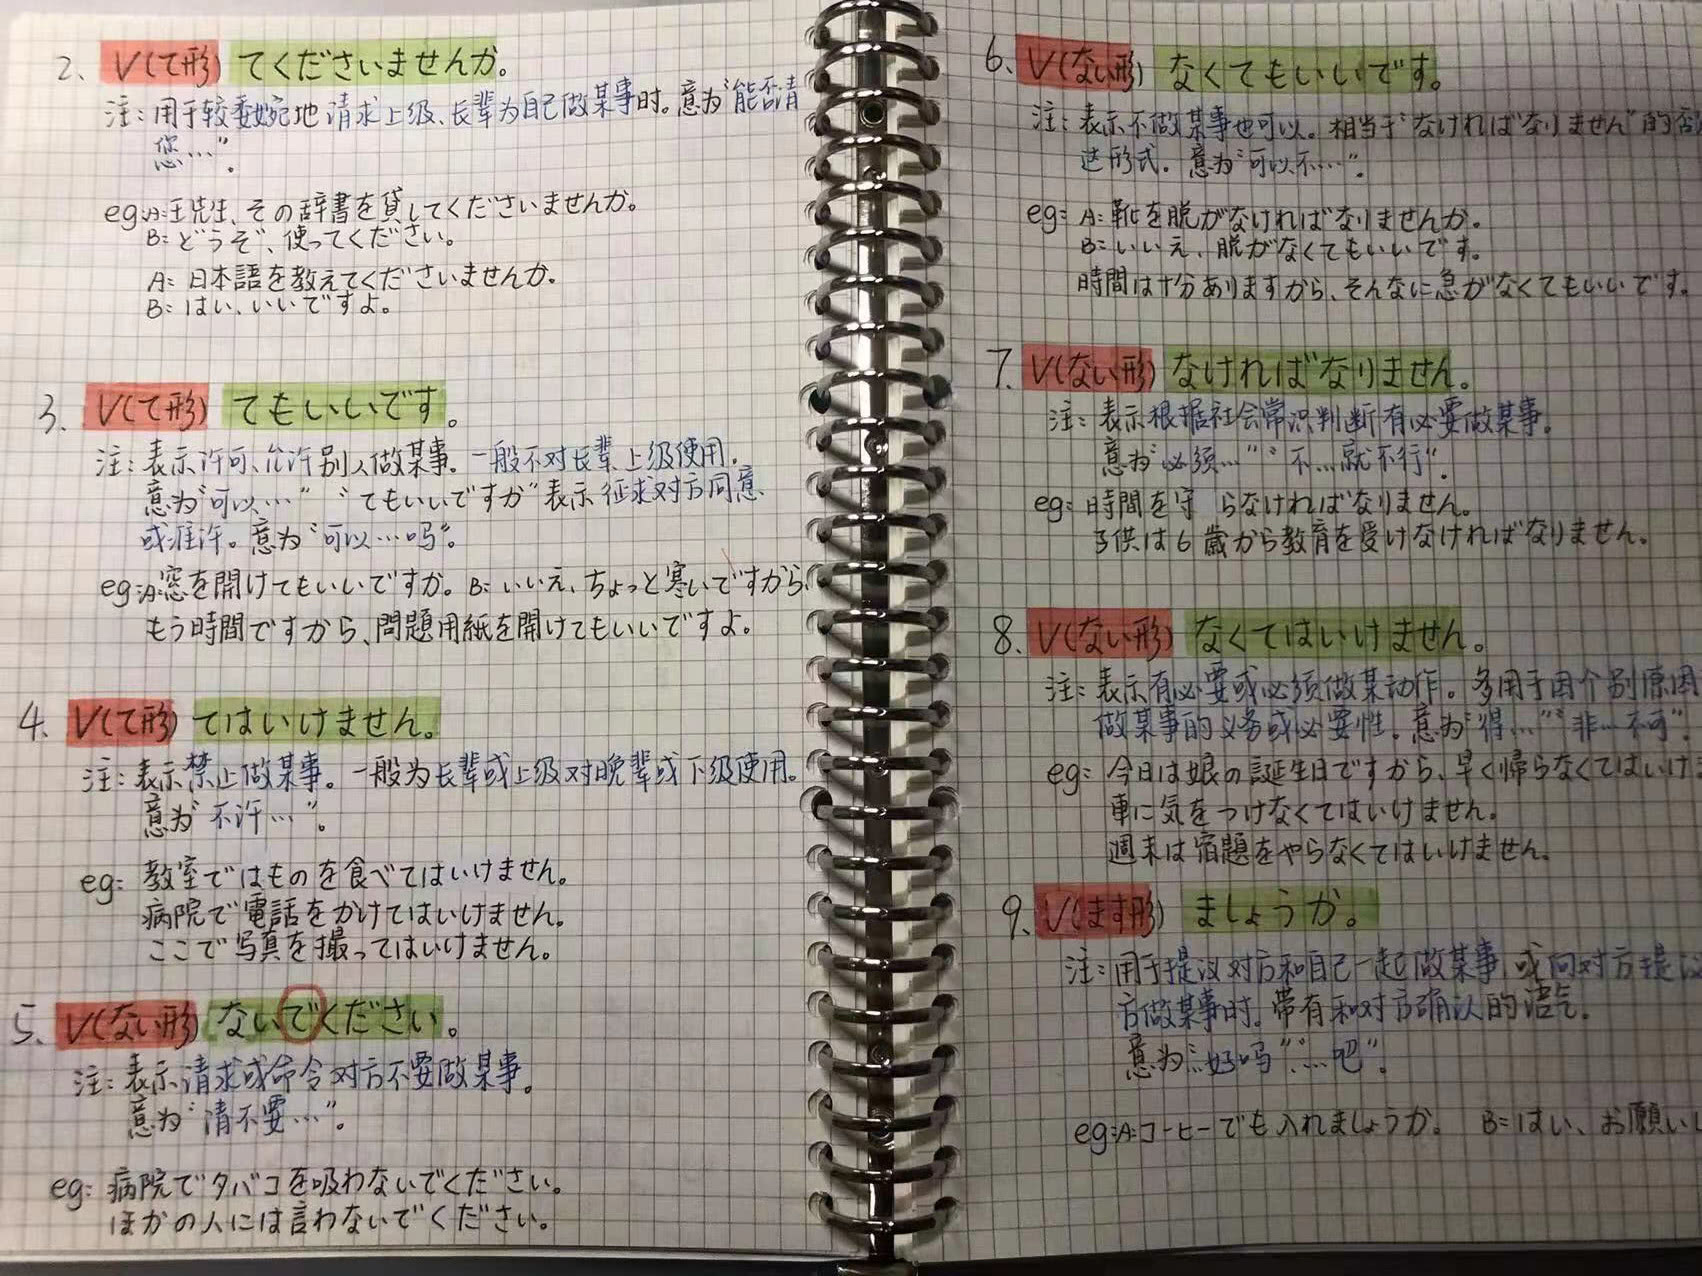 2、V(て形) てくださいませんか。
注：用于较委婉地请求上级、长辈为自己做某事时。意为“能否请
您…”。
eg:A:王先生、その辞書を貸してくださいませんか。
B:どうぞ、使ってください。
A:日本語を教えてくださいませんか。
B:はい、いいですよ。
3、V(て形) てもいいです。
注：表示许可、允许别人做某事。一般不对长辈、上级使用。
意为“可以…” “てもいいですか”表示征求对方同意
或准许。意为“可以…吗”。
eg:A:窓を開けてもいいですか。B:いいえ、ちょっと寒いですから、
もう時間ですから、問題用紙を開けてもいいですよ。
4、V(て形) てはいけません。
注：表示禁止做某事。一般为长辈或上级对晚辈或下级使用。
意为“不许…”。
eg:教室ではものを食べてはいけません。
病院で電話をかけてはいけません。
ここで写真を撮ってはいけません。
5、V(ない形) ないでください。
注：表示请求或命令对方不要做某事。
意为“请不要…”。
eg:病院でタバコを吸わないでください。
ほかの人には言わないでください。
6、V(ない形) なくてもいいです。
注：表示不做某事也可以。相当于“なければなりません”的否
达形式。意为“可以不…”。
eg:A:靴を脱がなければなりませんか。
B:いいえ、脱がなくてもいいです。
時間は十分ありますから、そんなに急がなくてもいいです。
7、V(ない形) なければなりません。
注：表示根据社会常识判断有必要做某事。
意为“必须…”“不…就不行”。
eg:時間を守らなければなりません。
子供は6歳から教育を受けなければなりません。
8、V(ない形) なくてはいけません。
注：表示有必要或必须做某动作。多用于因个别原因
做某事的义务或必要性。意为“得…”“非…不可”
eg:今日は娘の誕生日ですから、早く帰らなくてはいけ
車に気をつけなくてはいけません。
週末は宿題をやらなくてはいけません。
9、V(ます形) ましょうか。
注：用于提议对方和自己一起做某事，或向对方提
方做某事时。带有和对方确认的语气。
意为“…好吗”“…吧”。
eg:A:コーヒーでも入れましょうか。 B:はい、お願いし